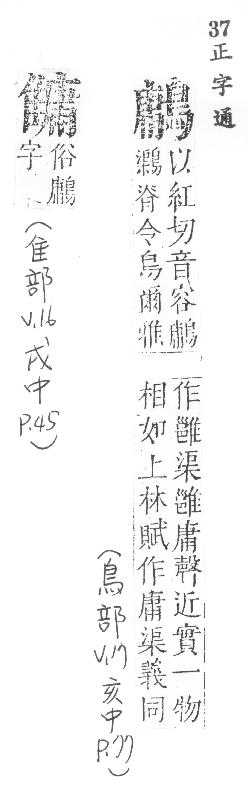 37 正字通
鷛
以紅切音容鷛
鸈脊令鳥爾雅
作雝渠雝庸聲近實一物
相如上林賦作庸渠義同
(鳥部 V.17 亥中 P.77)
俗鷛
字
(隹部 V.16 戌中 P.45)